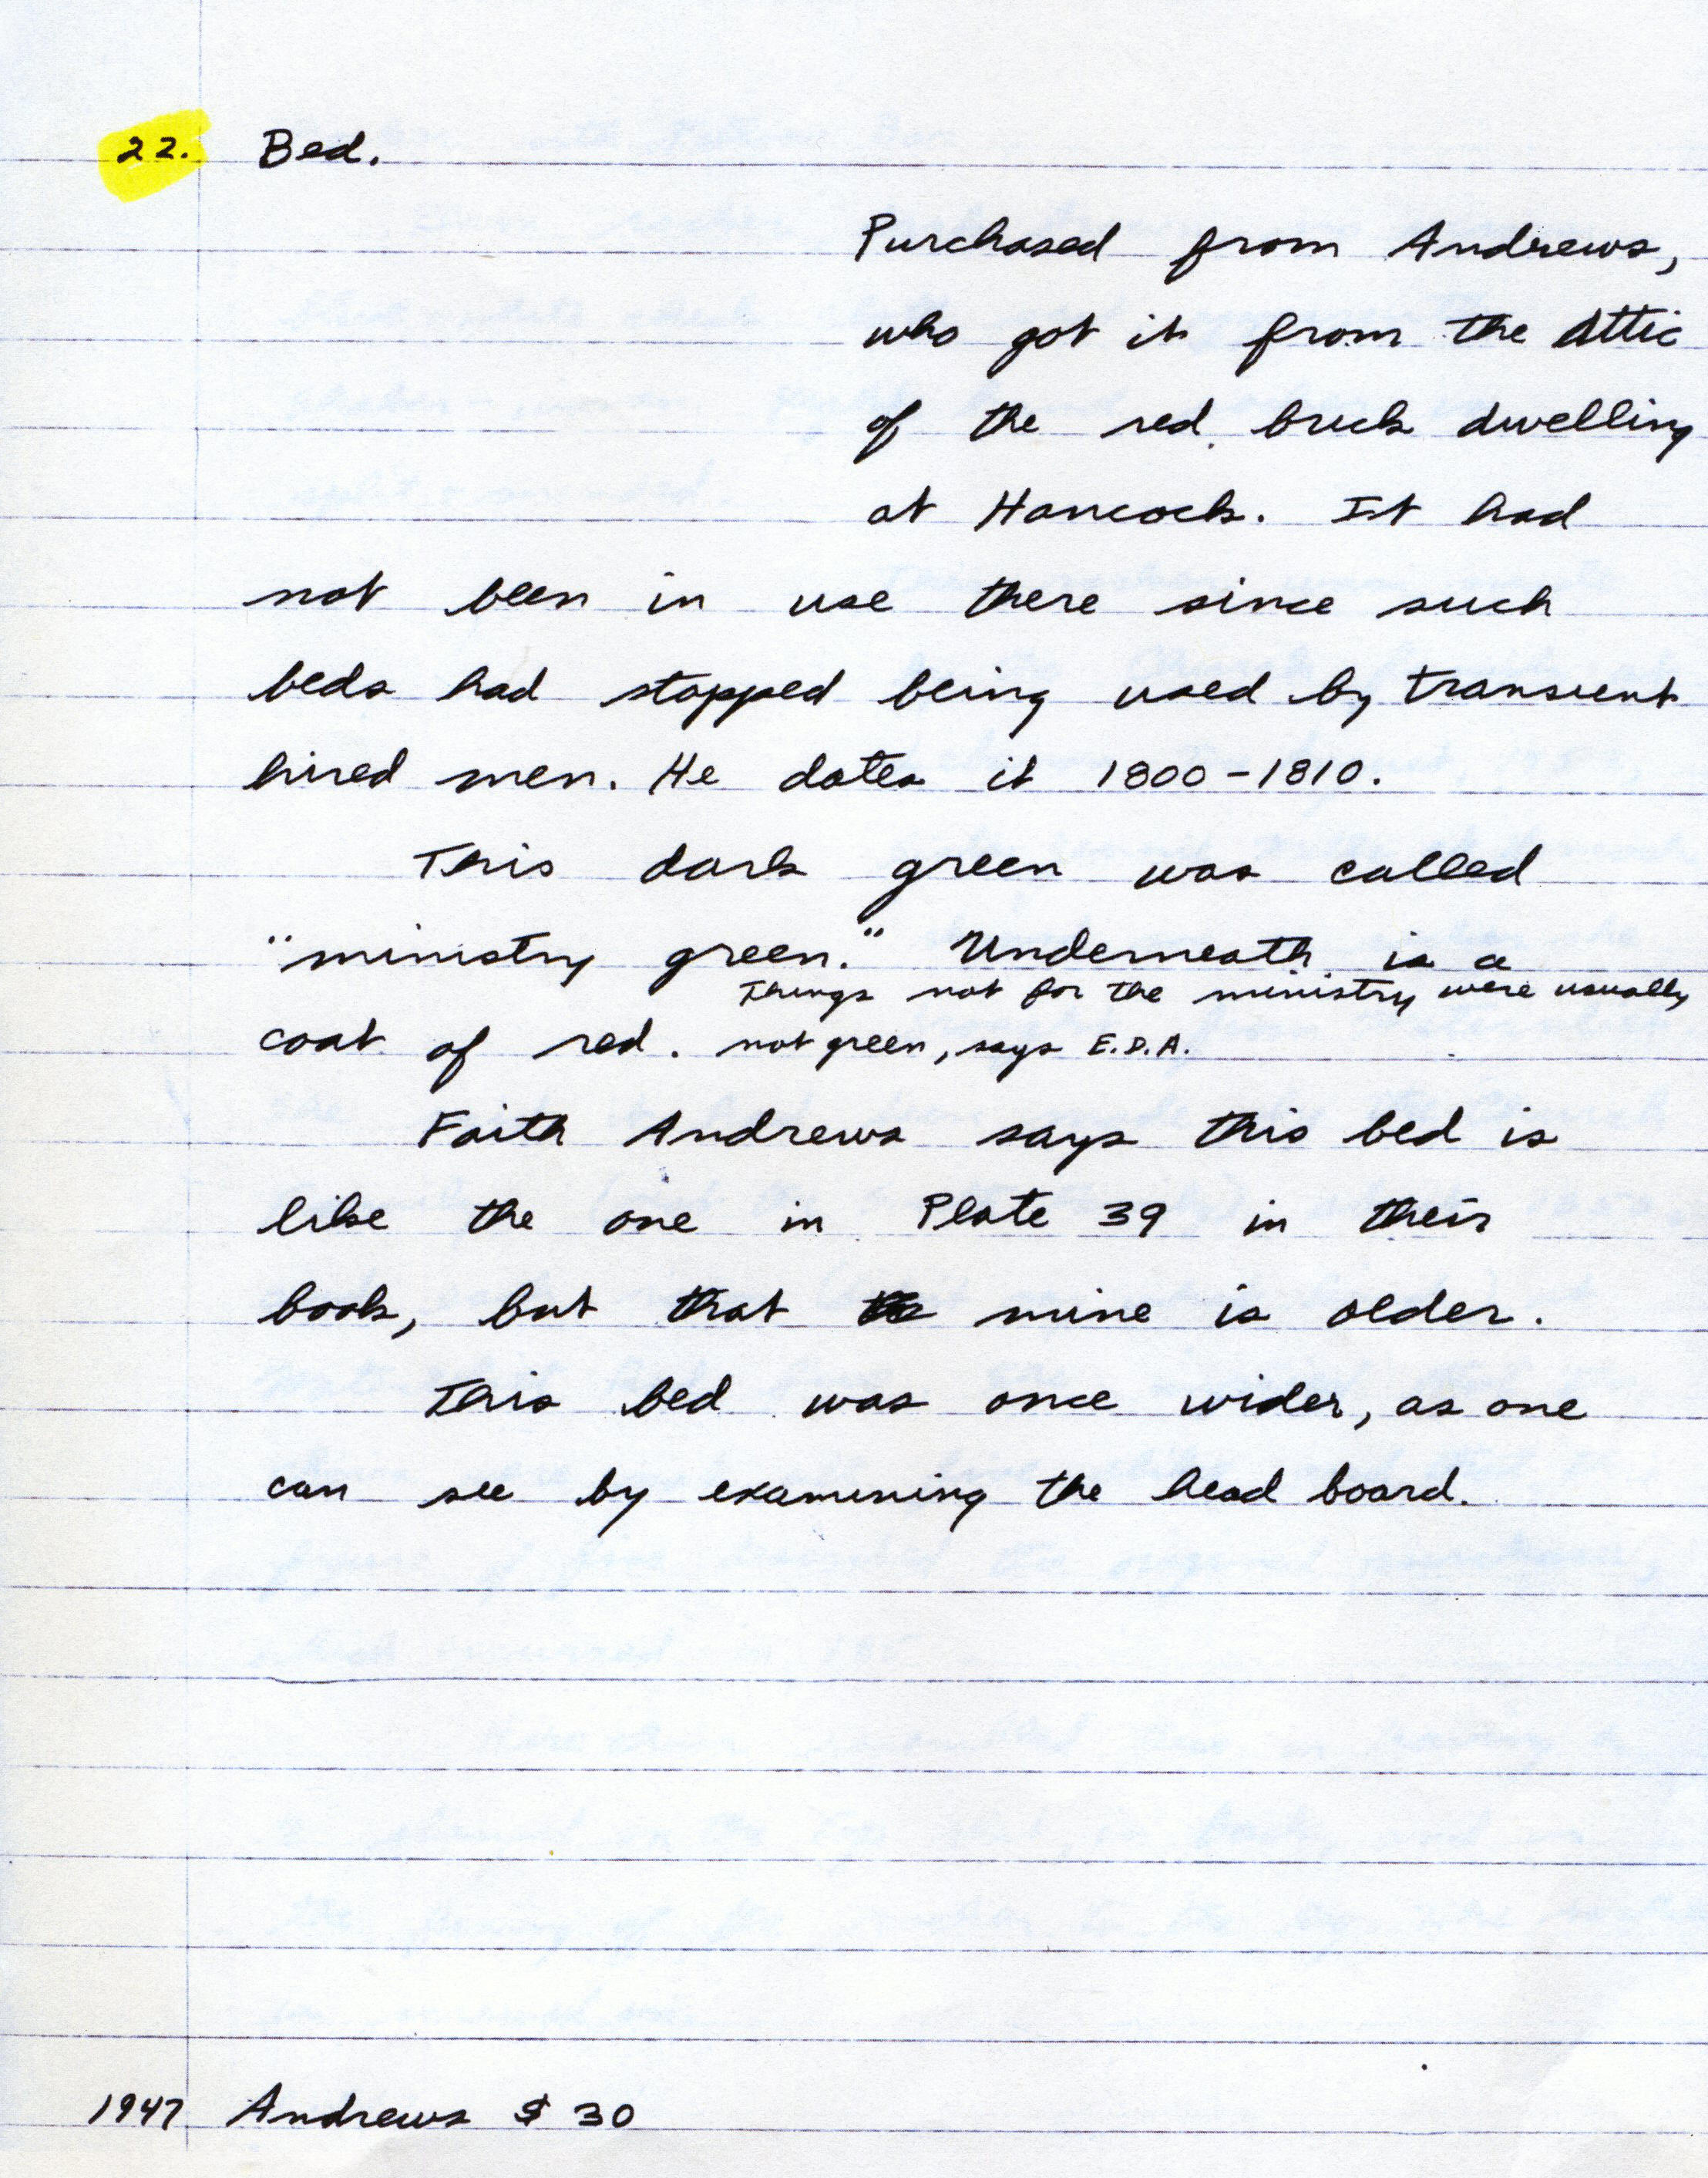 22. Bed.
Purchased from Andrews,
who got it from the attic
of the red brick dwelling
at Hancock. It had
not been in use there since such
beds had stopped being used by transient
hired men. He dates it 1800-1810.
This dark green was called
"ministry green." Underneath is a
Things not for the ministry were usually
coat of red. not green, says E.D.A.
Faith Andrews says this bed is
like the one in Plate 39 in their
book, but that mine is older.
This bed was once wider, as one
can see by examining the head board.
1947 Andrews $30